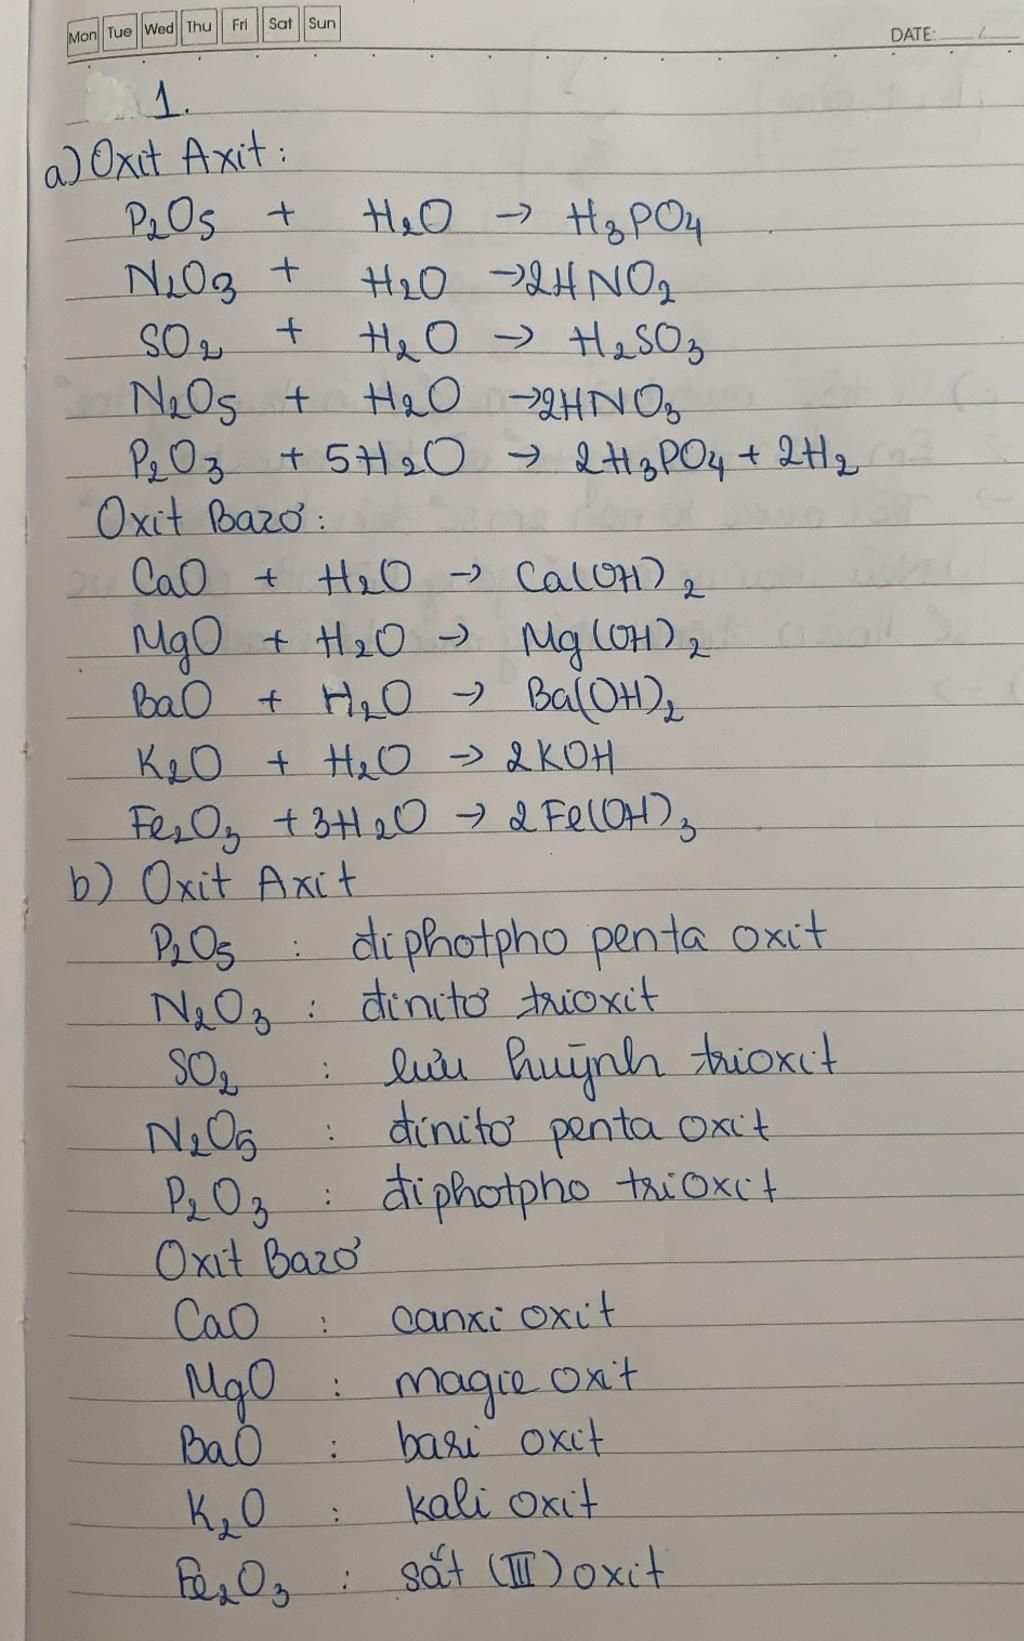 Mon Tue Wed Thu Fri Sat Sun DATE: __/__
1.
a) Oxit Axit:
P₂O₅ + H₂O → H₃PO₄
N₂O₃ + H₂O → 2HNO₂
SO₂ + H₂O → H₂SO₃
N₂O₅ + H₂O → 2HNO₃
P₂O₃ + 5H₂O → 2H₃PO₄ + 2H₂
Oxit Bazơ:
CaO + H₂O → Ca(OH)₂
MgO + H₂O → Mg(OH)₂
BaO + H₂O → Ba(OH)₂
K₂O + H₂O → 2KOH
Fe₂O₃ + 3H₂O → 2Fe(OH)₃
b) Oxit Axit
P₂O₅ : điphotpho penta oxit
N₂O₃ : đinitơ trioxit
SO₂ : lưu huỳnh trioxit
N₂O₅ : đinitơ penta oxit
P₂O₃ : điphotpho trioxit
Oxit Bazơ
CaO : canxi oxit
MgO : magie oxit
BaO : bari oxit
K₂O : kali oxit
Fe₂O₃ : sắt (III) oxit